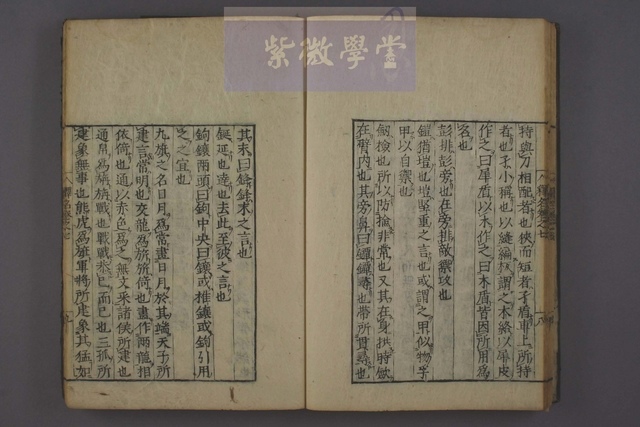 紫微學堂
持與刀相配者也狹而短者孑盾車上所持
者也孑小稱也以縫編版謂之木絡以犀皮
作之曰犀盾以木作之曰木盾皆因所用爲
名也
彭排彭旁也在旁排敵禦攻也
鎧猶塏也塏堅重之言也或謂之甲似物孚
甲以自禦也
劒檢也所以防檢非常也又其在身拱時斂
在臂内也其旁鼻曰鐔鐔尋也帶所貫尋也
釋名卷之七
其末曰鋒鋒末之言也
鋋延也達也去此至彼之言也
鉤鑲兩頭曰鉤中央曰鑲或推鑲或鉤引用
之之宜也
九旗之名日月爲常畫日月於其端天子所
建言常明也交龍爲旂旂倚也畫作兩龍相
依倚也通以赤色爲之無文采諸侯所建也
通帛爲旃旃戰也戰戰恭己而已也三孤所
建象無事也熊虎爲旗軍將所建象其猛如